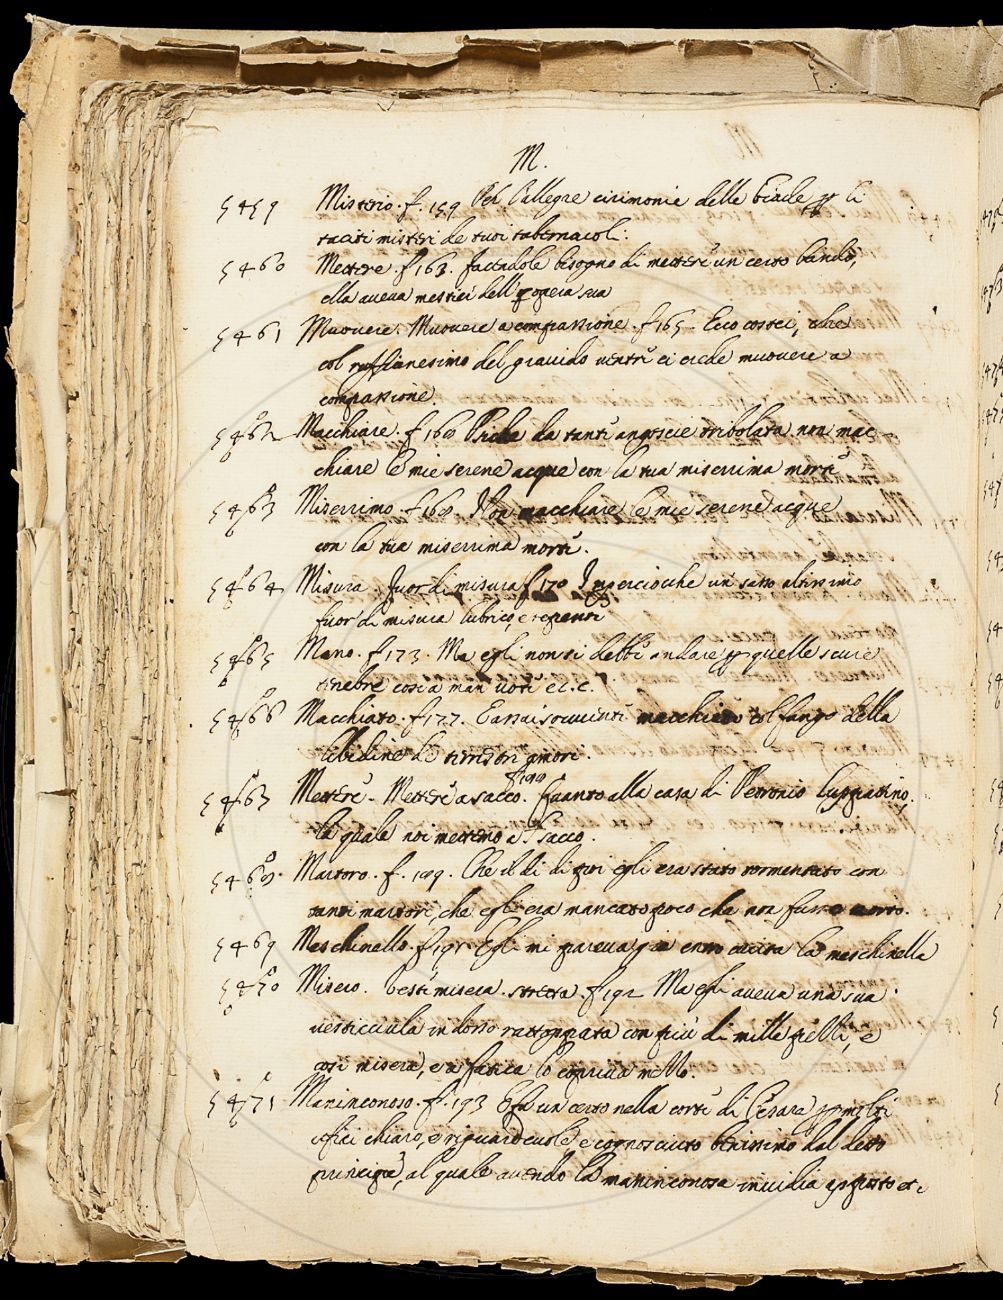 M.
5459 Misterio. f. 159 Per l'allegre cirimonie delle biade per li
taciti misteri de tuoi tabernacoli.
5460 Mettere. f 163. facendole bisogno di mettere un certo bando,
ella aveva mestier dell'opera sua
5461 Muovere. Muovere a compassione. f 165 Ecco costei, che
col ruffianesimo del gravido ventre ci crede muovere a
compassione.
5462 Macchiare. f 168 Psiche da tante angoscie tribolata non mac
chiare le mie serene acque con la tua miserrima morte
5463 Miserrimo. f 168. Non macchiare le mie serene acque
con la tua miserrima morte.
5464 Misura fuor di misura f 170 Imperciocche un sasso altissimo
fuor di misura lubrico, e repente
5465 Mano. f 173. Ma egli non si debbe andare per quelle scure
tenebre così a man vote ec. c.
5466 Macchiato. f 177. E assai sovventi macchiato col fango della
libidine de terrestri amori.
5467 Mettere. Mettere a sacco. f 180 quanto alla casa di Petronio Luzzattino,
la quale noi mettemo a sacco.
5468 Martoro. f. 189. Che il dì di jeri egli era stato tormentato con
tanti martori, che egli era mancato poco che non fusse morto.
5469 Meschinello. f 191 Egli mi pareva già entro la meschinella
5470 Misero. Veste misera. stretta. f 192 Ma egli aveva una sua
vesticciuola in dosso rattoppata con più di mille pelli, e
così misera, e a fatica lo copriva mezzo.
5471 Maninconoso. f. 193 E fu un certo nella corte di Cesare per molti
Ufici chiaro, e riguardevole e cognosciuto benissimo dal detto
principe, al quale avendo la maninconosa invidia apposto ec